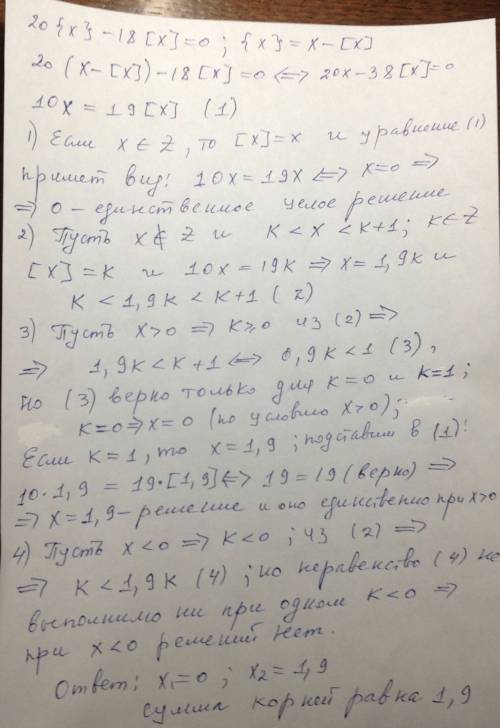 20{x} - 18[x] = 0 ; {x} = x - [x]
20 (x - [x]) - 18[x] = 0 <=> 20x - 38[x] = 0
10x = 19[x] (1)
1) Если x ∈ Z, то [x] = x и уравнение (1)
примет вид: 10x = 19x <=> x = 0 =>
=> 0 - единственное целое решение
2) Пусть x ∉ Z и K < x < K+1; K ∈ Z
[x] = K и 10x = 19K => x = 1,9K и
K < 1,9K < K+1 (2)
3) Пусть x>0 => K ≥ 0 из (2) =>
=> 1,9K < K+1 <=> 0,9K < 1 (3),
но (3) верно только для K=0 и K=1;
K=0 => x=0 (по условию x>0);
Если K=1, то x = 1,9 ; подставим в (1):
10·1,9 = 19·[1,9] <=> 19 = 19 (верно) =>
=> x = 1,9 - решение и оно единственно при x>0
4) Пусть x<0 => K<0 ; из (2) =>
=> K < 1,9K (4) ; но неравенство (4) не
выполнимо ни при одном K<0 =>
при x<0 решений нет.
Ответ: x₁=0 ; x₂ = 1,9
сумма корней равна 1,9